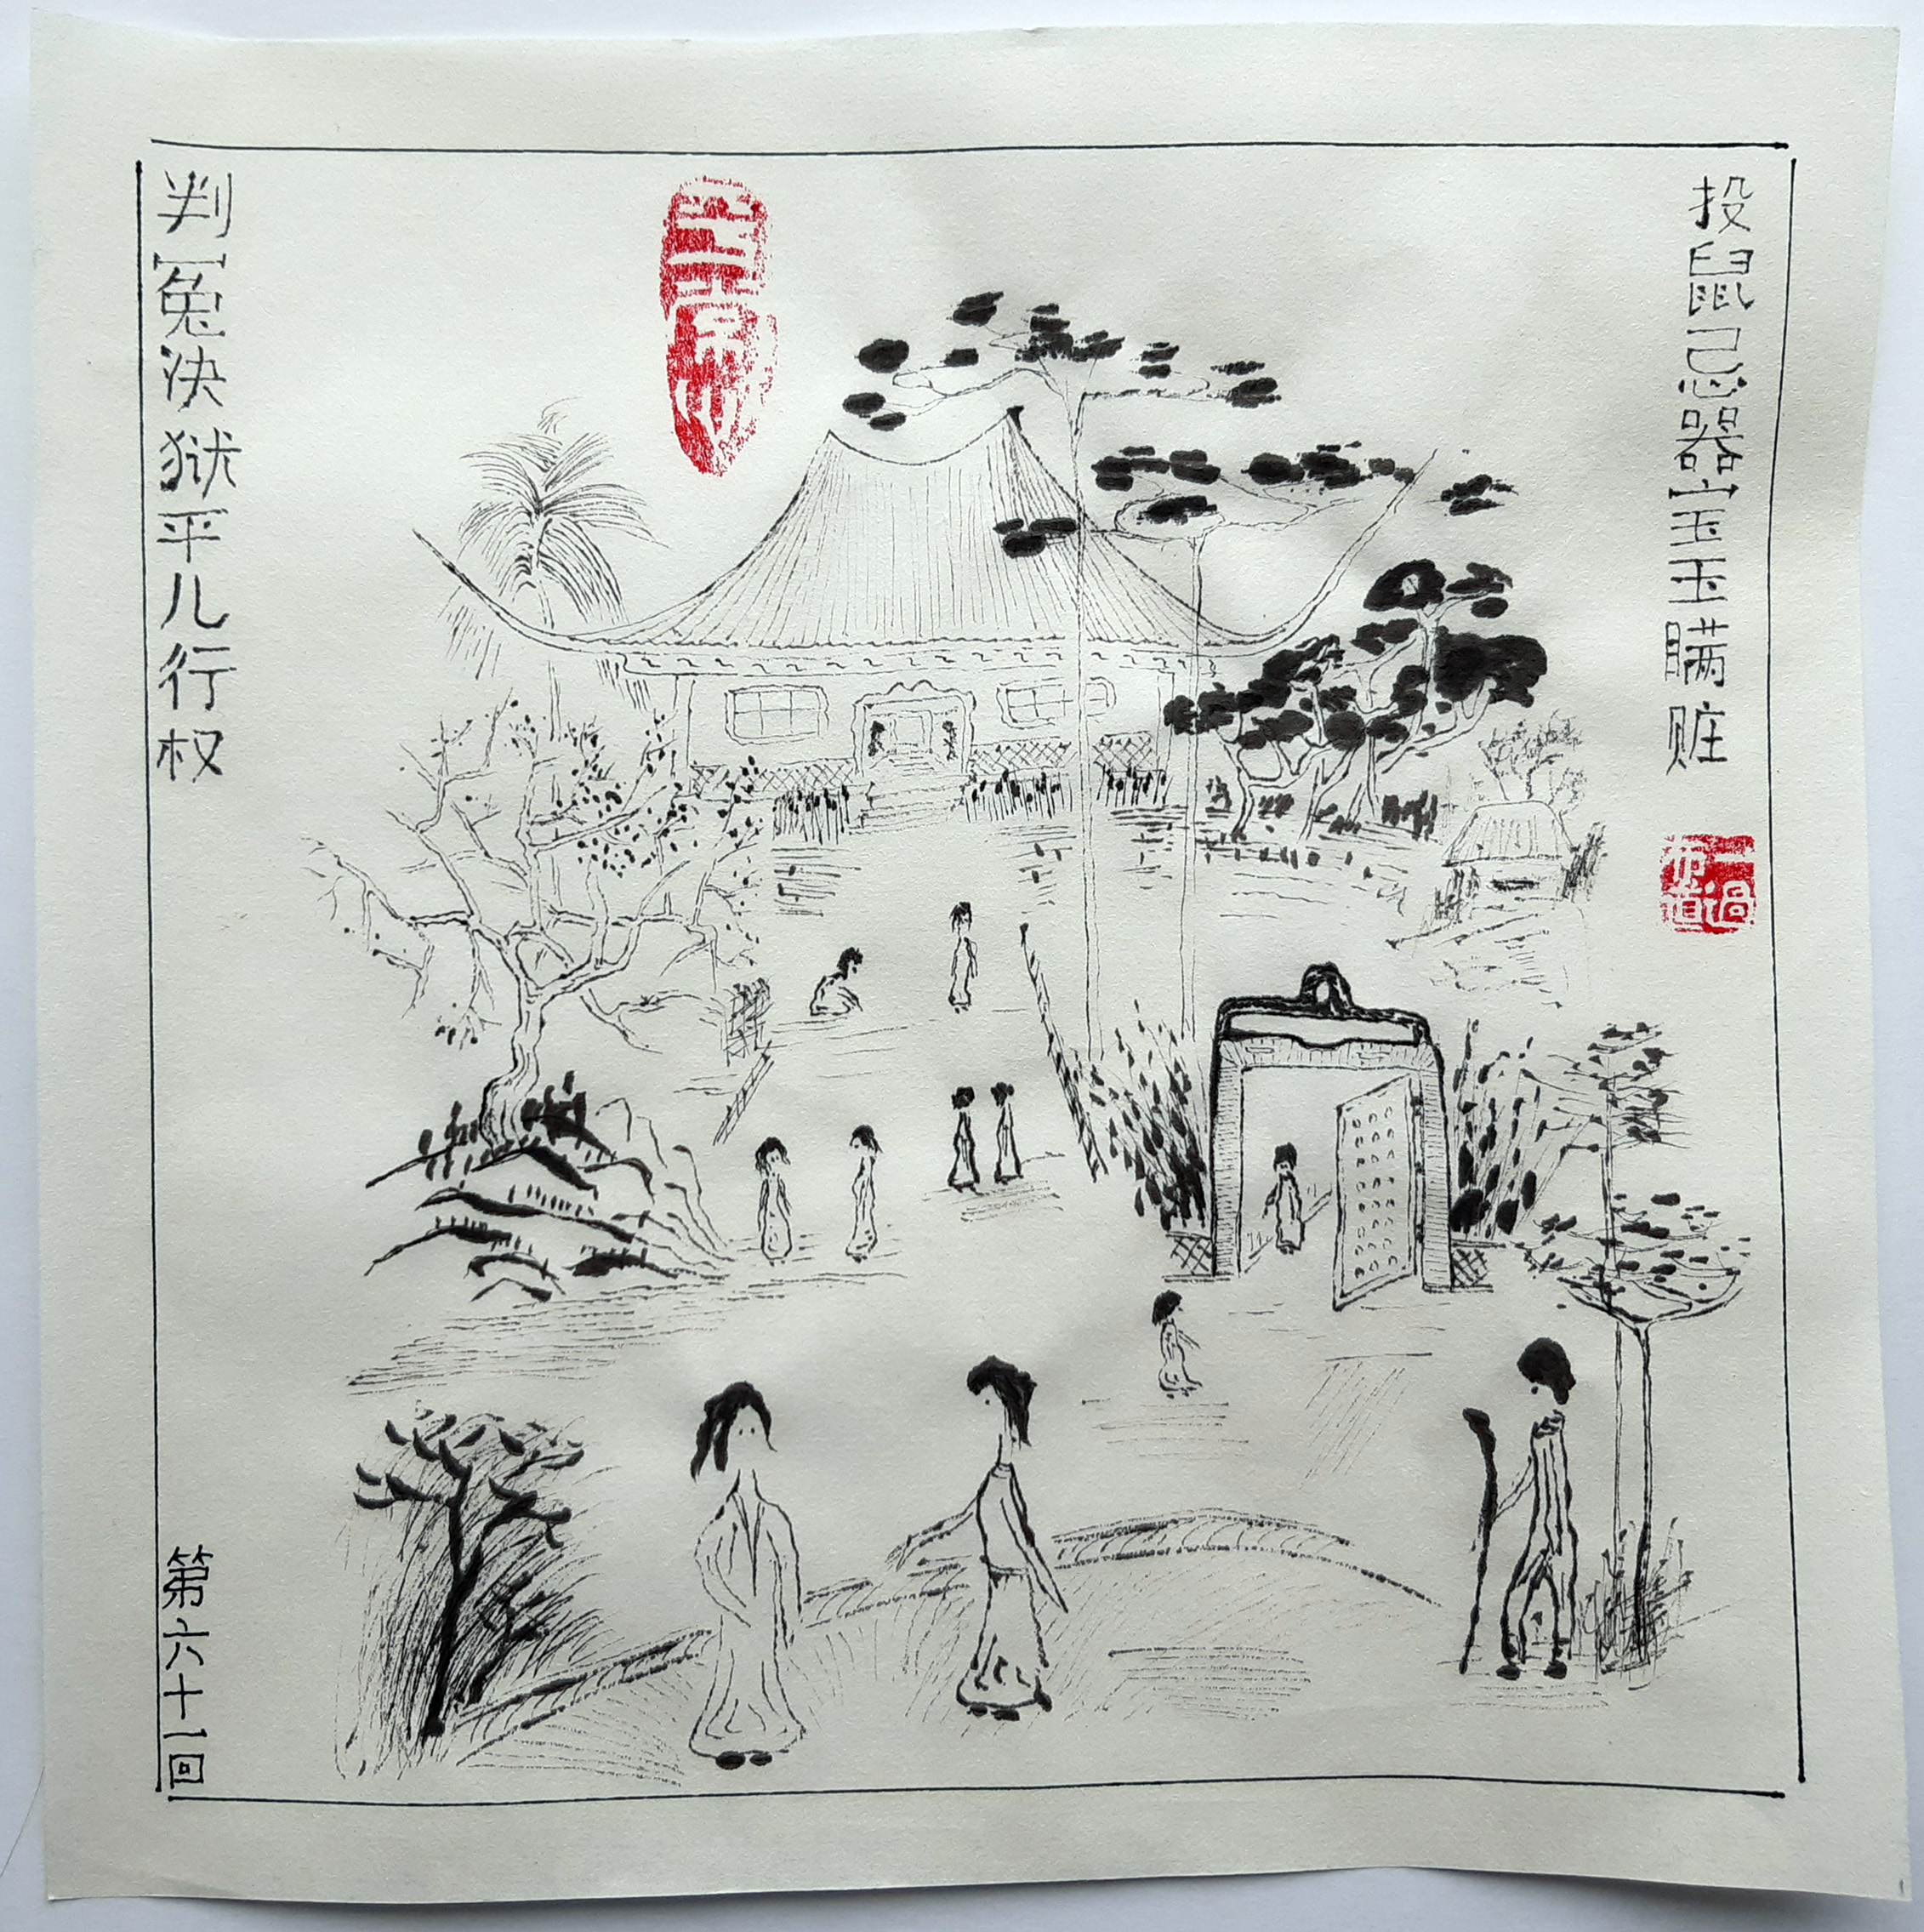 投鼠忌器宝玉瞒赃
判冤决狱平儿行权
第六十一回